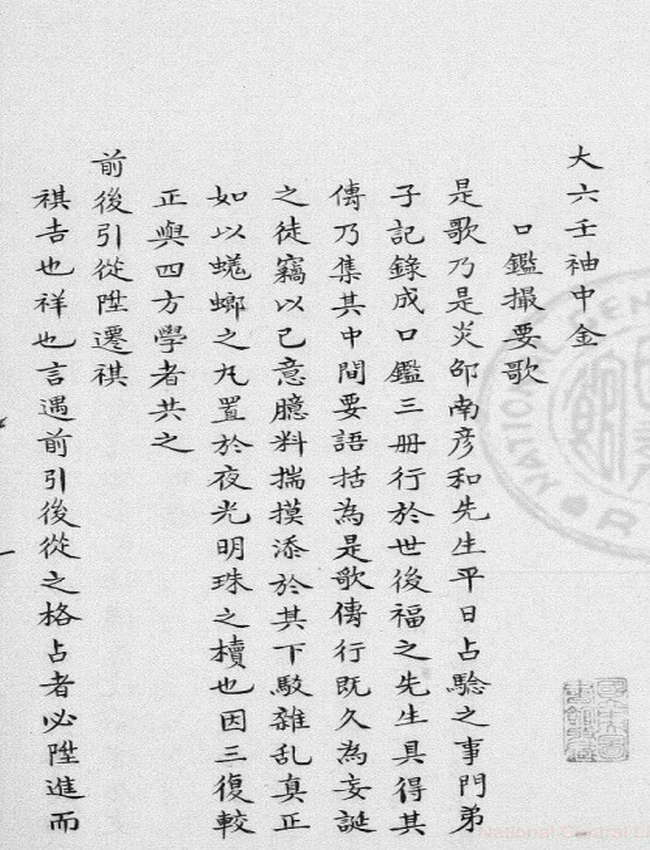 大六壬袖中金
口鑑撮要歌
是歌乃是炎邵南彦和先生平日占騐之事門弟
子記錄成口鑑三册行於世後福之先生具得其
傳乃集其中間要語括為是歌傳行既久為妄誕
之徒竊以己意臆料揣摸添於其下駁雜乱真正
如以蜣螂之丸置於夜光明珠之櫝也因三復較
正與四方學者共之
前後引從陞遷祺
祺吉也祥也言遇前引後從之格占者必陞進而
National Central Li